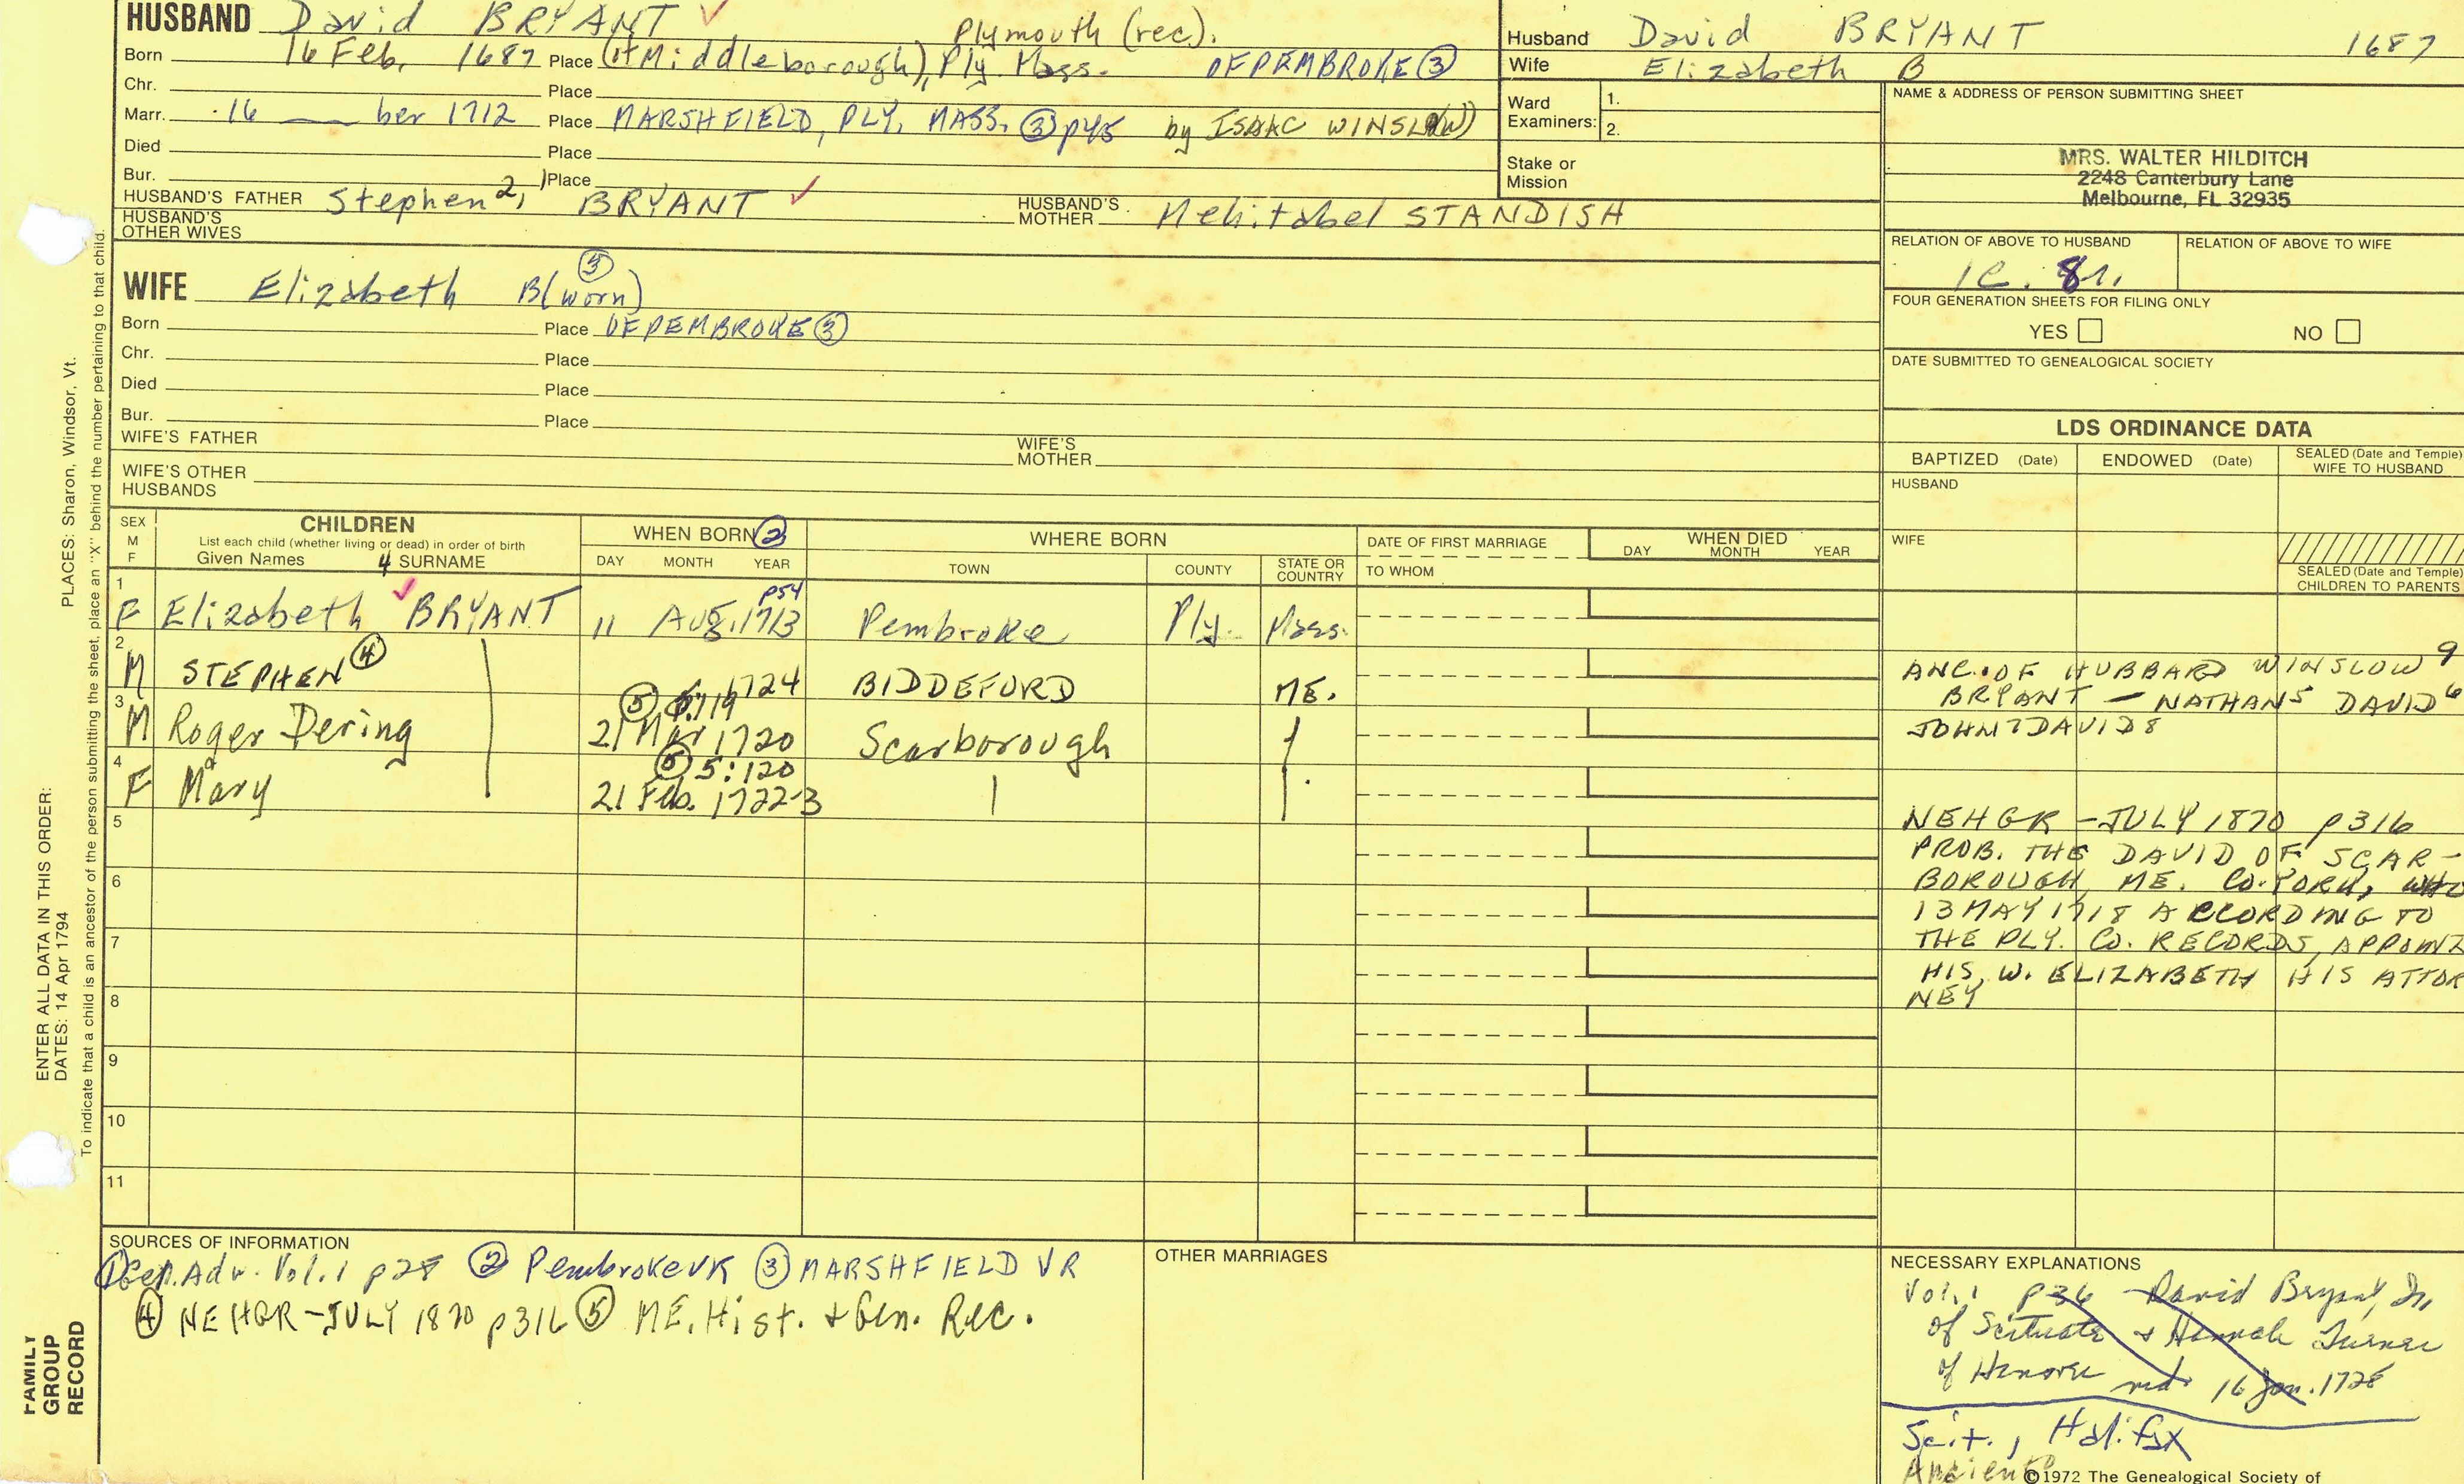 HUSBAND David BRYANT ✓
Born 16 Feb. 1687 Place (Middleborough), Ply. Mass. Plymouth (rec). OF PEMBROKE ③
Chr. Place
Marr. 16 ___ ber 1712 Place MARSHFIELD, PLY. MASS. ③ p45 by ISAAC WINSLOW
Died Place
Bur. Place
HUSBAND'S FATHER Stephen 2, BRYANT ✓ HUSBAND'S MOTHER Mehitabel STANDISH
HUSBAND'S OTHER WIVES
WIFE Elizabeth B(worn)
Born Place OF PEMBROKE ③
Chr. Place
Died Place
Bur. Place
WIFE'S FATHER WIFE'S MOTHER
WIFE'S OTHER HUSBANDS
Husband David BRYANT 1687
Wife Elizabeth B
Ward Examiners: 1.
2.
Stake or Mission
NAME & ADDRESS OF PERSON SUBMITTING SHEET
MRS. WALTER HILDITCH
2248 Canterbury Lane
Melbourne, FL 32935
RELATION OF ABOVE TO HUSBAND RELATION OF ABOVE TO WIFE
1C. 8r.
FOUR GENERATION SHEETS FOR FILING ONLY
YES NO
DATE SUBMITTED TO GENEALOGICAL SOCIETY
LDS ORDINANCE DATA
BAPTIZED (Date) ENDOWED (Date) SEALED (Date and Temple) WIFE TO HUSBAND
HUSBAND
WIFE
SEALED (Date and Temple) CHILDREN TO PARENTS
SEX M F CHILDREN
List each child (whether living or dead) in order of birth
Given Names 4 SURNAME
WHEN BORN ②
DAY MONTH YEAR
WHERE BORN
TOWN COUNTY STATE OR COUNTRY
DATE OF FIRST MARRIAGE
TO WHOM
WHEN DIED
DAY MONTH YEAR
1 F Elizabeth ✓ BRYANT 11 Aug. 1713 p54 Pembroke Ply. Mass.
2 M STEPHEN ④ 1724 BIDDEFORD ME.
3 M Roger Dering ⑤ 21 Mar 1720 Scarborough
4 F Mary 5:120 21 Feb. 1722-3
5
6
7
8
9
10
11
ANC. OF HUBBARD WINSLOW 9
BRYANT — NATHAN5 DAVID6
JOHN7 DAVID8
NEHGR - JULY 1870 p316
PROB. THE DAVID OF SCAR-
BOROUGH, ME. CO. YORK, WHO
13 MAY 1718 ACCORDING TO
THE PLY. CO. RECORDS, APPOINT
HIS W. ELIZABETH HIS ATTOR
NEY
SOURCES OF INFORMATION
① Gen. Adv. Vol. 1 p28 ② Pembroke VR ③ MARSHFIELD VR
④ NEHGR - JULY 1870 p316 ⑤ ME. Hist. & Gen. Rec.
OTHER MARRIAGES
NECESSARY EXPLANATIONS
Vol. 1 p36 David Bryant, Jr.
of Scituate & Hannah Turner
of Hanover md. 16 Jan. 1728
Scit., Halifax
©1972 The Genealogical Society of
PLACES: Sharon, Windsor, Vt.
To indicate that a child is an ancestor of the person submitting the sheet, place an "X" behind the number pertaining to that child.
ENTER ALL DATA IN THIS ORDER:
DATES: 14 Apr 1794
FAMILY GROUP RECORD